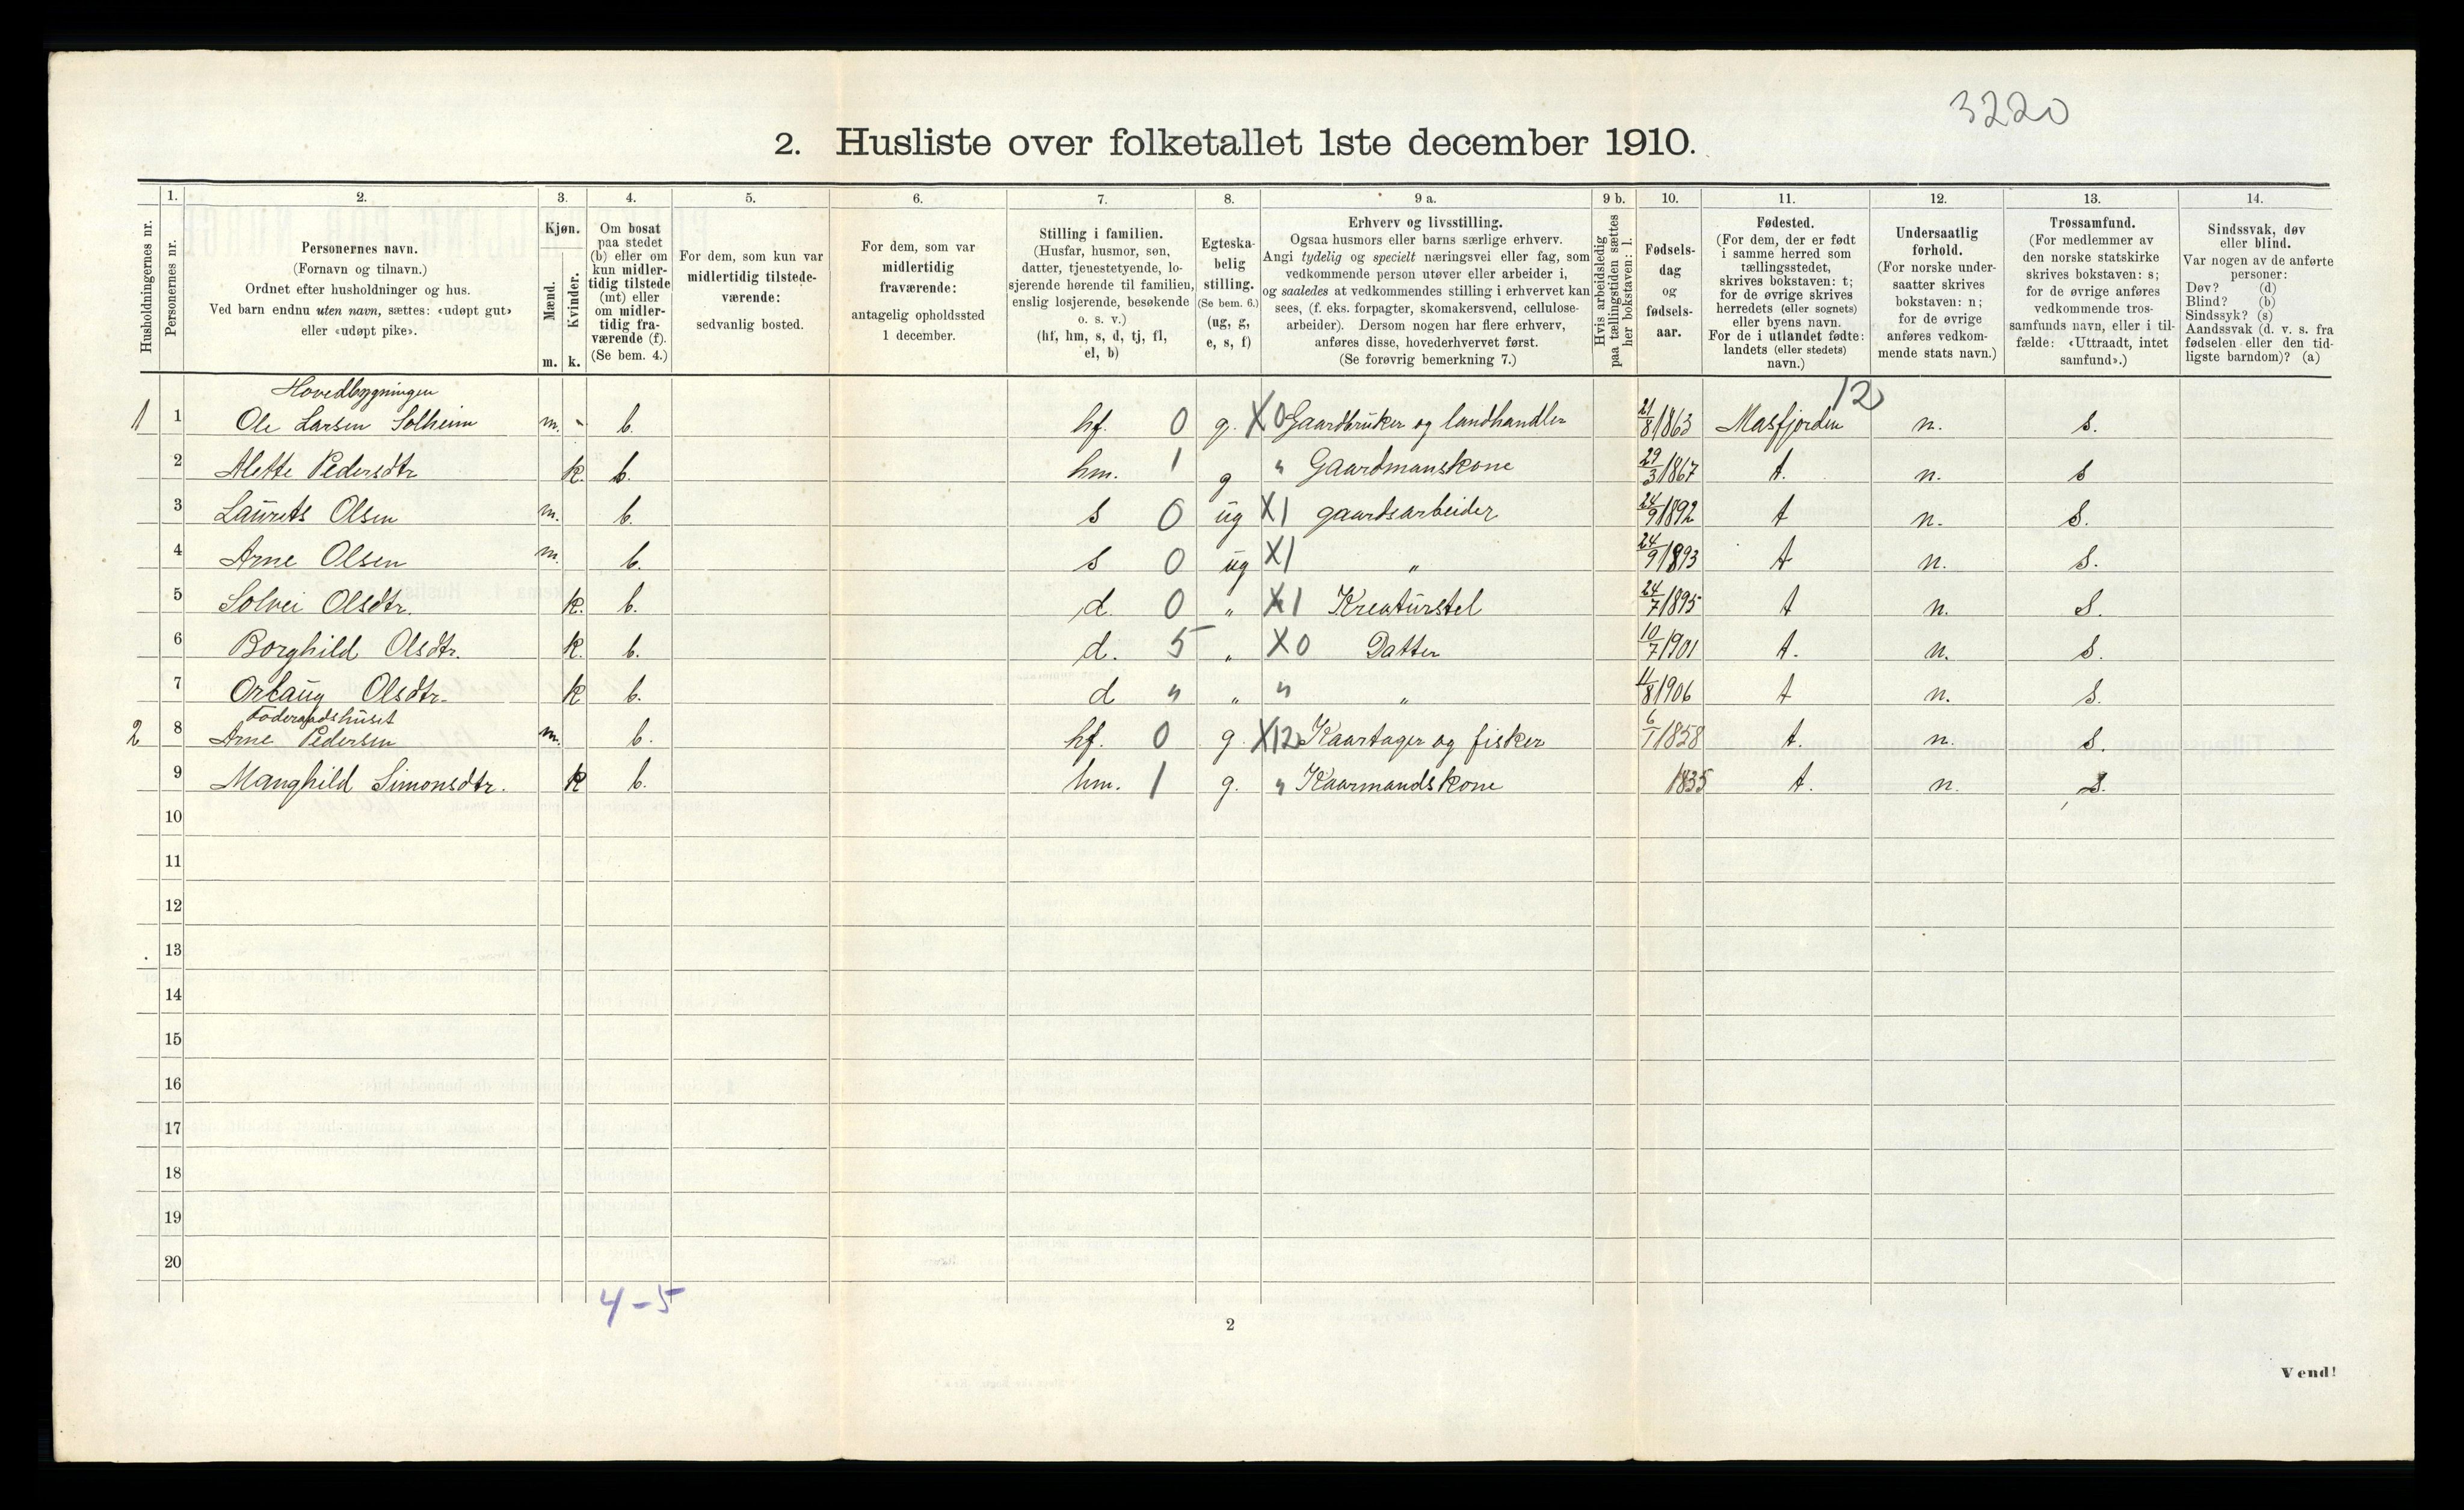 3220
2. Husliste over folketallet 1ste december 1910.
Husholdningernes nr.
1.
Personernes nr.
2.
Personernes navn.
(Fornavn og tilnavn.)
Ordnet efter husholdninger og hus.
Ved barn endnu uten navn, sættes: «udøpt gut»
eller «udøpt pike».
3.
Kjøn.
Mænd.
Kvinder.
m. k.
4.
Om bosat
paa stedet
(b) eller om
kun midler-
tidig tilstede
(mt) eller
om midler-
tidig fra-
værende (f).
(Se bem. 4.)
5.
For dem, som kun var
midlertidig tilstede-
værende:
sedvanlig bosted.
6.
For dem, som var
midlertidig
fraværende:
antagelig opholdssted
1 december.
7.
Stilling i familien.
(Husfar, husmor, søn,
datter, tjenestetyende, lo-
sjerende hørende til familien,
enslig losjerende, besøkende
o. s. v.)
(hf, hm, s, d, tj, fl,
el, b)
8.
Egteska-
belig
stilling.
(Se bem. 6.)
(ug, g,
e, s, f)
9 a.
Erhverv og livsstilling.
Ogsaa husmors eller barns særlige erhverv.
Angi tydelig og specielt næringsvei eller fag, som
vedkommende person utøver eller arbeider i,
og saaledes at vedkommendes stilling i erhvervet kan
sees, (f. eks. forpagter, skomakersvend, cellulose-
arbeider). Dersom nogen har flere erhverv,
anføres disse, hovederhvervet først.
(Se forøvrig bemerkning 7.)
9 b.
Hvis arbeidsledig
paa tællingstiden sættes
her bokstaven: l.
10.
Fødsels-
dag
og
fødsels-
aar.
11.
Fødested.
(For dem, der er født
i samme herred som
tællingsstedet,
skrives bokstaven: t;
for de øvrige skrives
herredets (eller sognets)
eller byens navn.
For de i utlandet fødte:
landets (eller stedets)
navn.)
12.
Undersaatlig
forhold.
(For norske under-
saatter skrives
bokstaven: n;
for de øvrige
anføres vedkom-
mende stats navn.)
13.
Trossamfund.
(For medlemmer av
den norske statskirke
skrives bokstaven: s;
for de øvrige anføres
vedkommende tros-
samfunds navn, eller i til-
fælde: «Uttraadt, intet
samfund».)
14.
Sindssvak, døv
eller blind.
Var nogen av de anførte
personer:
Døv? (d)
Blind? (b)
Sindssyk? (s)
Aandssvak (d. v. s. fra
fødselen eller den tid-
ligste barndom)? (a)
Hovedbygningen
12
1 1 Ole Larsen Solheim m. - b. hf. 0 g. X0 Gaardbruker og landhandler 21/8 1863 Masfjorden n. s.
2 Alette Pedersdtr k. b. hm. 1 g " Gaardmanskone 29/3 1867 t. n. s
3 Laurets Olsen m. b. s 0 ug X1 gaardsarbeider 24/9 1892 t n. s.
4 Arne Olsen m. b. s 0 ug X1 " 24/9 1893 t n. s.
5 Solvei Olsdtr. k. b. d. 0 " X1 Kreaturstel 24/7 1895 t n. s.
6 Borghild Olsdtr. k. b. d. 5 " X0 Datter 10/7 1901 t. n. s.
7 Orlaug Olsdtr. k b. d " " " " 11/8 1906 t n. s.
Föderaadshuset
2 8 Arne Pedersen m. b. hf. 0 g. X12 Kaartager og fisker 6/1 1858 t. n. s.
9 Manghild Simonsdtr. k b. hm. 1 g. " Kaarmandskone 1835 t. n. s.
10
11
12
13
14
15
16
17
18
19
20
4-5
2
Vend!